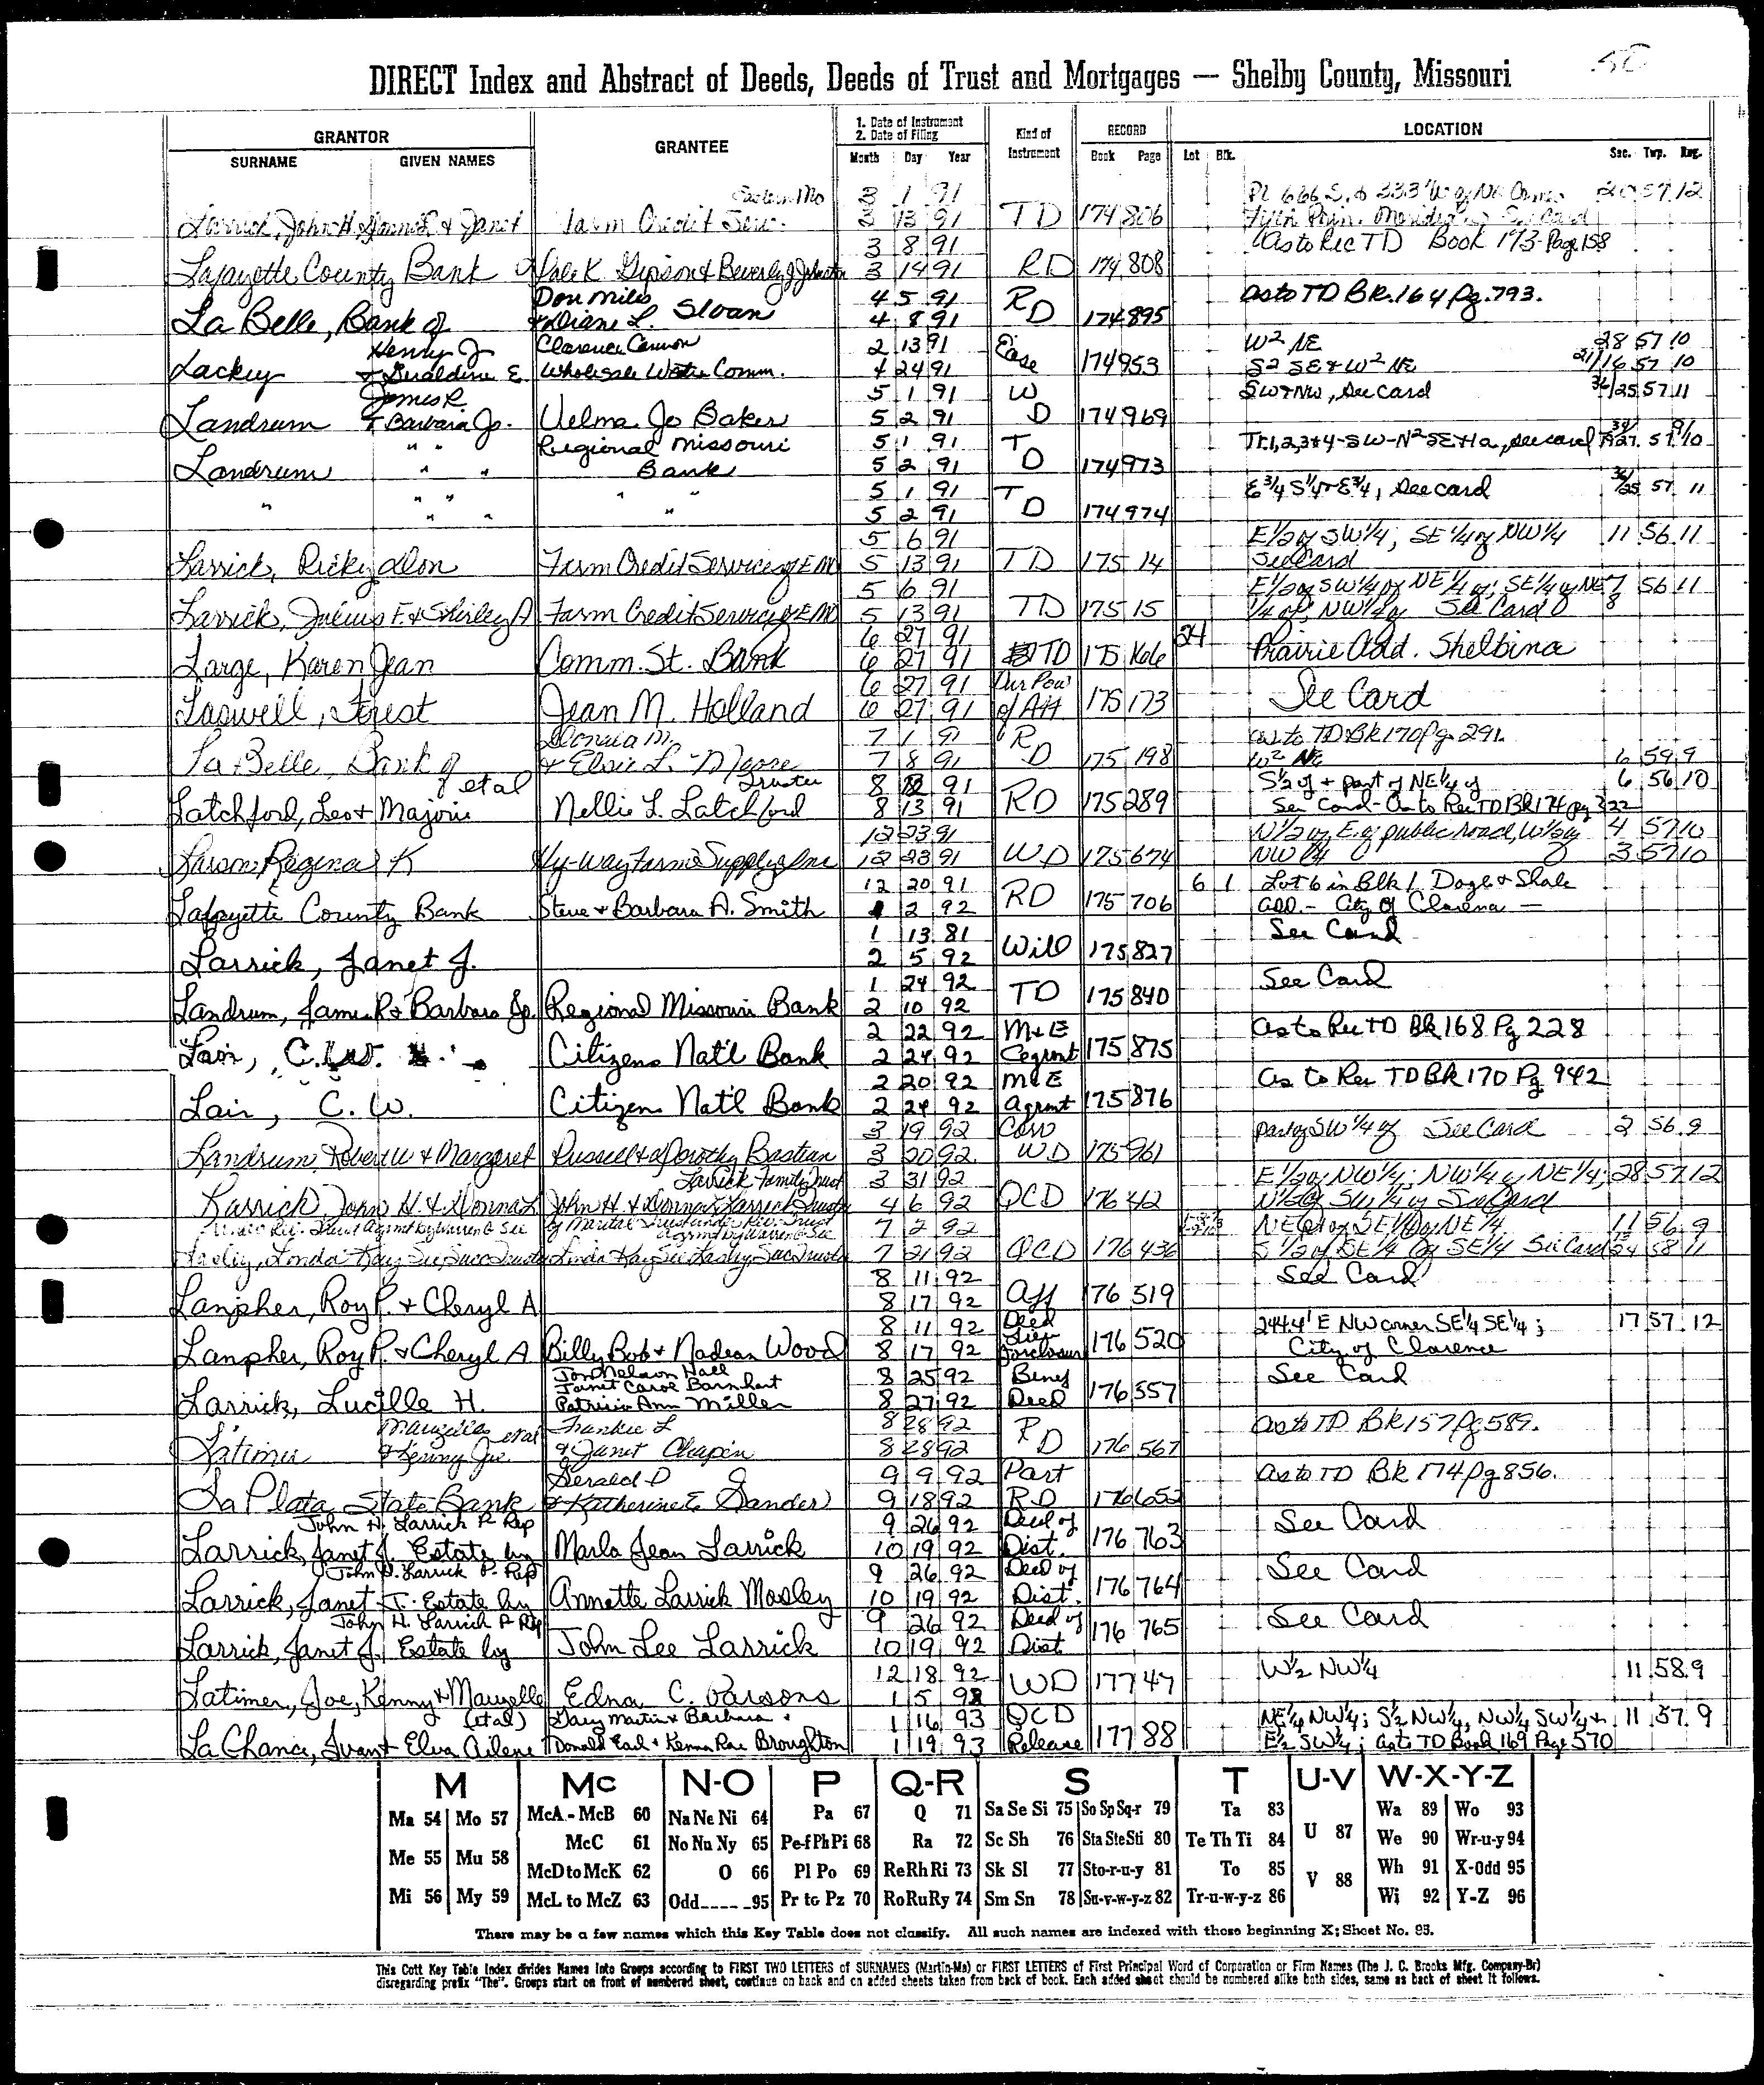 50
DIRECT Index and Abstract of Deeds, Deeds of Trust and Mortgages — Shelby County, Missouri
GRANTOR GRANTEE 1. Date of Instrument 2. Date of Filing Kind of Instrument RECORD LOCATION
SURNAME GIVEN NAMES Month Day Year Book Page Lot Blk. Sec. Twp. Rng.
Eastern Mo 3 1 91 20 57 12
Larrick, John H, Donna L & Janet Farm Credit Serv. 3 13 91 TD 174 806
3 8 91 as to Rec TD Book 173 Page 158
Lafayette County Bank & Beverly J 3 14 91 RD 174 808
Don Miles 4 5 91 as to TD Bk. 164 Pg. 793.
La Belle, Bank of & Diane L. Sloan 4 8 91 RD 174 895
Henry J Clarence Cannon 2 13 91 W2 NE 28 57 10
Lackey & Geraldine E. Wholesale Water Comm. 4 24 91 Ease 174 953 S2 SE & W2 NE 21/16 57 10
James R 5 1 91 W SW & NW, See card 36/25 57 11
Landrum & Barbara Jo. Velma Jo Baker 5 2 91 D 174 969
" " Regional Missouri 5 1 91 T Tr. 1,2,3 & 4 - SW - N2 SE + 1a, see card
Landrum " " Bank 5 2 91 D 174 973
" " " " 5 1 91 T See card 36/25 57 11
" " " " 5 2 91 D 174 974
5 6 91 E 1/2 of SW 1/4; SE 1/4 of NW 1/4 11 56 11
Larrick, Ricky Don Farm Credit Services of E M 5 13 91 TD 175 14 See Card
5 6 91 E 1/2 of SW 1/4 of NE 1/4 of; SE 1/4 of NE 7 56 11
Larrick, Julius F. & Shirley A Farm Credit Services of E M 5 13 91 TD 175 15 1/4 of; NW 1/4 of See Card 8
6 27 91 24
Large, Karen Jean Comm. St. Bank 6 27 91 TD 175 166 Prairie Add. Shelbina
6 27 91 Dur Pow
Laswell, Forest Jean M. Holland 6 27 91 of Att 175 173 See Card
Donald M. 7 1 91 R as to TD Bk 170 Pg. 291.
La Belle, Bank of & Elsie L. Moore 7 8 91 D 175 198 W2 NE 6 59 9
et al Trustee 8 12 91 S 1/2 of + part of NE 1/4 of 6 56 10
Latchford, Leo & Majorie Nellie L. Latchford 8 13 91 RD 175 289 See Card - as to Rec TD Bk 174 pg 322
12 23 91 N 1/2 of E. of public road, W 1/2 of 4 57 10
Larson Regina K Hy-Way Farm Supply Inc 12 23 91 WD 175 674 NW 1/4 3 57 10
12 20 91 6 1 Lot 6 in Blk 1 Doge & Shale
Lafayette County Bank Steve & Barbara A. Smith 1 2 92 RD 175 706 add. - City of Clarence -
1 13 81 See Card
Larrick, Janet J. 2 5 92 Will 175 827
1 24 92 See Card
Landrum, James R & Barbara Jo. Regional Missouri Bank 2 10 92 TD 175 840
2 22 92 M & E as to Rec TD Bk 168 Pg 228
Lair, C. W. Citizens Nat'l Bank 2 24 92 Cegrmt 175 875
2 20 92 M & E as to Rec TD Bk 170 Pg 942
Lair, C. W. Citizens Nat'l Bank 2 24 92 agrmt 175 876
3 19 92 Corr part of SW 1/4 of See Card 2 56 9
Landrum, Robert W & Margaret Russell & Dorothy Bastian 3 20 92 WD 175 961
Larrick Family Trust 3 31 92 E 1/2 of NW 1/4; NW 1/4 of NE 1/4; 28 57 12
Larrick John H. & Donna L John H & Donna L Larrick Trusts 4 6 92 QCD 176 42 See Card
7 2 92 NE 1/4 of SE 1/4 of NE 1/4 11 56 9
7 21 92 QCD 176 436 S 1/2 of SE 1/4 of SE 1/4 See Card 24 58 11
8 11 92 See Card
Lanpher, Roy P. & Cheryl A 8 17 92 Aff 176 519
8 11 92 Deed 244.4' E NW corner SE 1/4 SE 1/4; 17 57 12
Lanpher, Roy P. & Cheryl A Billy Bob & Nadean Wood 8 17 92 Lieu Foreclosure 176 520 City of Clarence
Jon Nelson Hall
Janet Carol Barnhart 8 25 92 Benef See Card
Larrick, Lucille H. Patricia Ann Miller 8 27 92 Deed 176 557
Maurzelle et al Frankie L 8 28 92 R as to TD Bk 157 Pg 589.
Latimer & Kenny Joe & Janet Chapin 8 28 92 D 176 567
Gerald D 9 9 92 Part as to TD Bk 174 Pg 856.
La Plata State Bank & Katherine E Sander 9 18 92 RD 176 652
John H. Larrick P. Rep 9 26 92 Deed of See Card
Larrick, Janet J. Estate by Marla Jean Larrick 10 19 92 Dist. 176 763
John H. Larrick P. Rep 9 26 92 Deed of See Card
Larrick, Janet J. Estate by Annette Larrick Mosley 10 19 92 Dist. 176 764
John H. Larrick P. Rep 9 26 92 Deed of See Card
Larrick, Janet J. Estate by John Lee Larrick 10 19 92 Dist 176 765
12 18 92 W 1/2 NW 1/4 11 58 9
Latimer, Joe, Kenny & Maurzelle Edna C. Parsons 1 5 93 WD 177 47
(et al) Gary Martin & Barbara & 1 16 93 QCD NE 1/4 NW 1/4; S 1/2 NW 1/4, NW 1/4 SW 1/4 & 11 57 9
La Chance, Ivan & Elva Ailene Donald Earl & Kenna Rae Broughton 1 19 93 Release 177 88 E 1/2 SW 1/4; as to TD Book 169 Page 570
M Mc N-O P Q-R S T U-V W-X-Y-Z
Ma 54 Mo 57 McA - McB 60 Na Ne Ni 64 Pa 67 Q 71 Sa Se Si 75 So Sp Sq-r 79 Ta 83 Wa 89 Wo 93
McC 61 No Nu Ny 65 Pe-f Ph Pi 68 Ra 72 Sc Sh 76 Sta Ste Sti 80 Te Th Ti 84 U 87 We 90 Wr-u-y 94
Me 55 Mu 58 McD to McK 62 O 66 Pl Po 69 Re Rh Ri 73 Sk Sl 77 Sto-r-u-y 81 To 85 V 88 Wh 91 X-Odd 95
Mi 56 My 59 McL to McZ 63 Odd 95 Pr to Pz 70 Ro Ru Ry 74 Sm Sn 78 Su-v-w-y-z 82 Tr-u-w-y-z 86 Wi 92 Y-Z 96
There may be a few names which this Key Table does not classify. All such names are indexed with those beginning X; Sheet No. 95.
This Cott Key Table Index divides Names Into Groups according to FIRST TWO LETTERS of SURNAMES (Martin-Ma) or FIRST LETTERS of First Principal Word of Corporation or Firm Names (The J. C. Brooks Mfg. Company-Br)
disregarding prefix "The". Groups start on front of numbered sheet, continue on back and on added sheets taken from back of book. Each added sheet should be numbered alike both sides, same as back of sheet it follows.